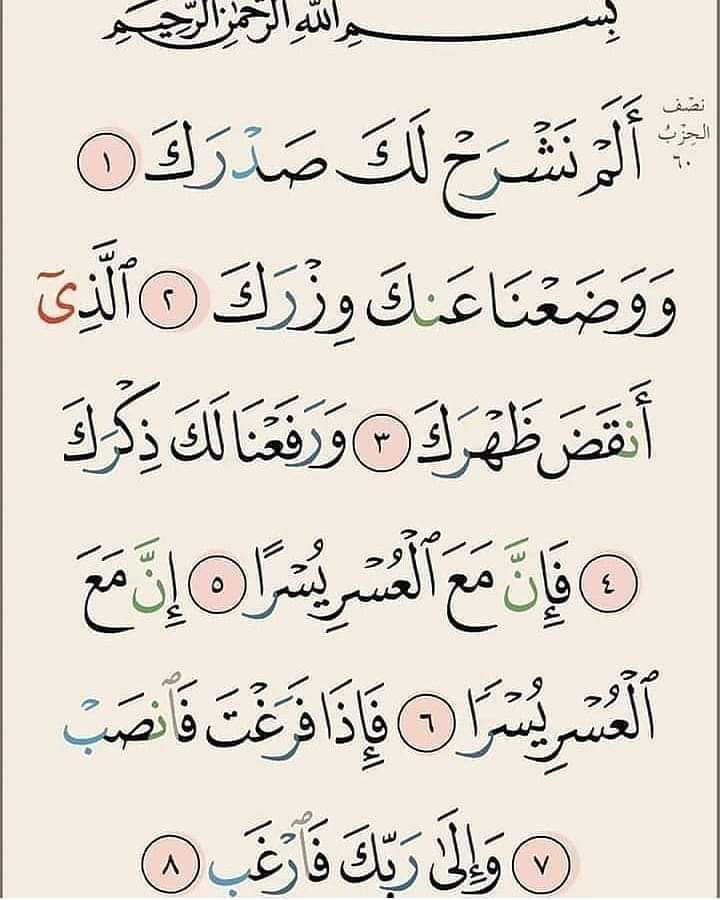 بِسْمِ اللَّهِ الرَّحْمَٰنِ الرَّحِيمِ
نصف
الحِزْبُ
٦٠
أَلَمْ نَشْرَحْ لَكَ صَدْرَكَ ١
وَوَضَعْنَا عَنكَ وِزْرَكَ ٢ ٱلَّذِىٓ
أَنقَضَ ظَهْرَكَ ٣ وَرَفَعْنَا لَكَ ذِكْرَكَ
٤ فَإِنَّ مَعَ ٱلْعُسْرِ يُسْرًا ٥ إِنَّ مَعَ
ٱلْعُسْرِ يُسْرًا ٦ فَإِذَا فَرَغْتَ فَٱنصَبْ
٧ وَإِلَىٰ رَبِّكَ فَٱرْغَب ٨